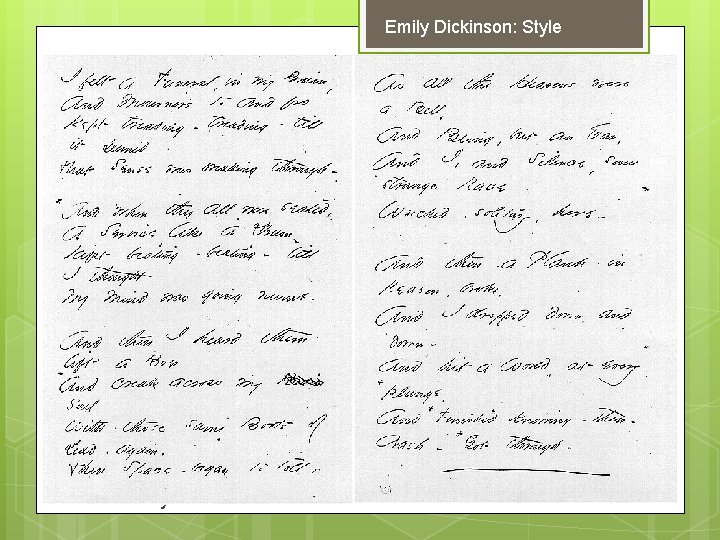 Emily Dickinson: Style
I felt a Funeral, in my Brain,
And Mourners to and fro
Kept treading - treading - till
it seemed
that Sense was breaking through -
And when they all were seated,
A Service, like a Drum -
Kept beating - beating - till
I thought
My mind was going numb -
And then I heard them
lift a Box
And creak across my
Soul
With those same Boots of
Lead, again,
Then Space - began to toll,
As all the Heavens were
a Bell,
And Being, but an Ear,
And I, and Silence, some
strange Race
Wrecked, solitary, here -
And then a Plank in
Reason, broke,
And I dropped down, and
down -
And hit a World, at every
+ plunge,
And + Finished knowing - then -
+ Crash - + Got through -